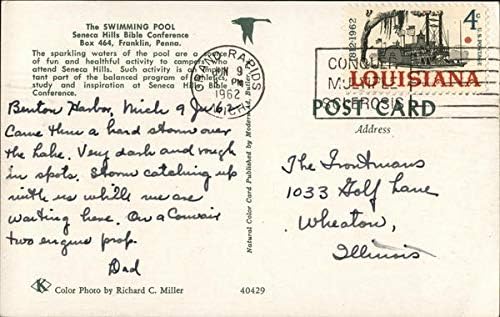 The SWIMMING POOL
Seneca Hills Bible Conference
Box 464, Franklin, Penna.
The sparkling waters of the pool are a source
of fun and healthful activity to campers who
attend Seneca Hills. Such activity is an impor-
tant part of the balanced program of athletics,
study and inspiration at Seneca Hills Bible
Conference.
Benton Harbor, Mich 9 Ju 62
Came thru a hard storm over
the Lake. Very dark and rough
in spots. Storm catching up
with us while we are
waiting here. On a Convair
two engine prop.
Dad
K
Color Photo by Richard C. Miller
40429
Natural Color Card Made by
GRAND RAPIDS
9
PM
1962
MICH.
CONQUER
MULTIPLE
SCLEROSIS
1812-1962
4¢
U.S. POSTAGE
LOUISIANA
POST CARD
Address
The Troutmans
1033 Golf Lane
Wheaton,
Illinois